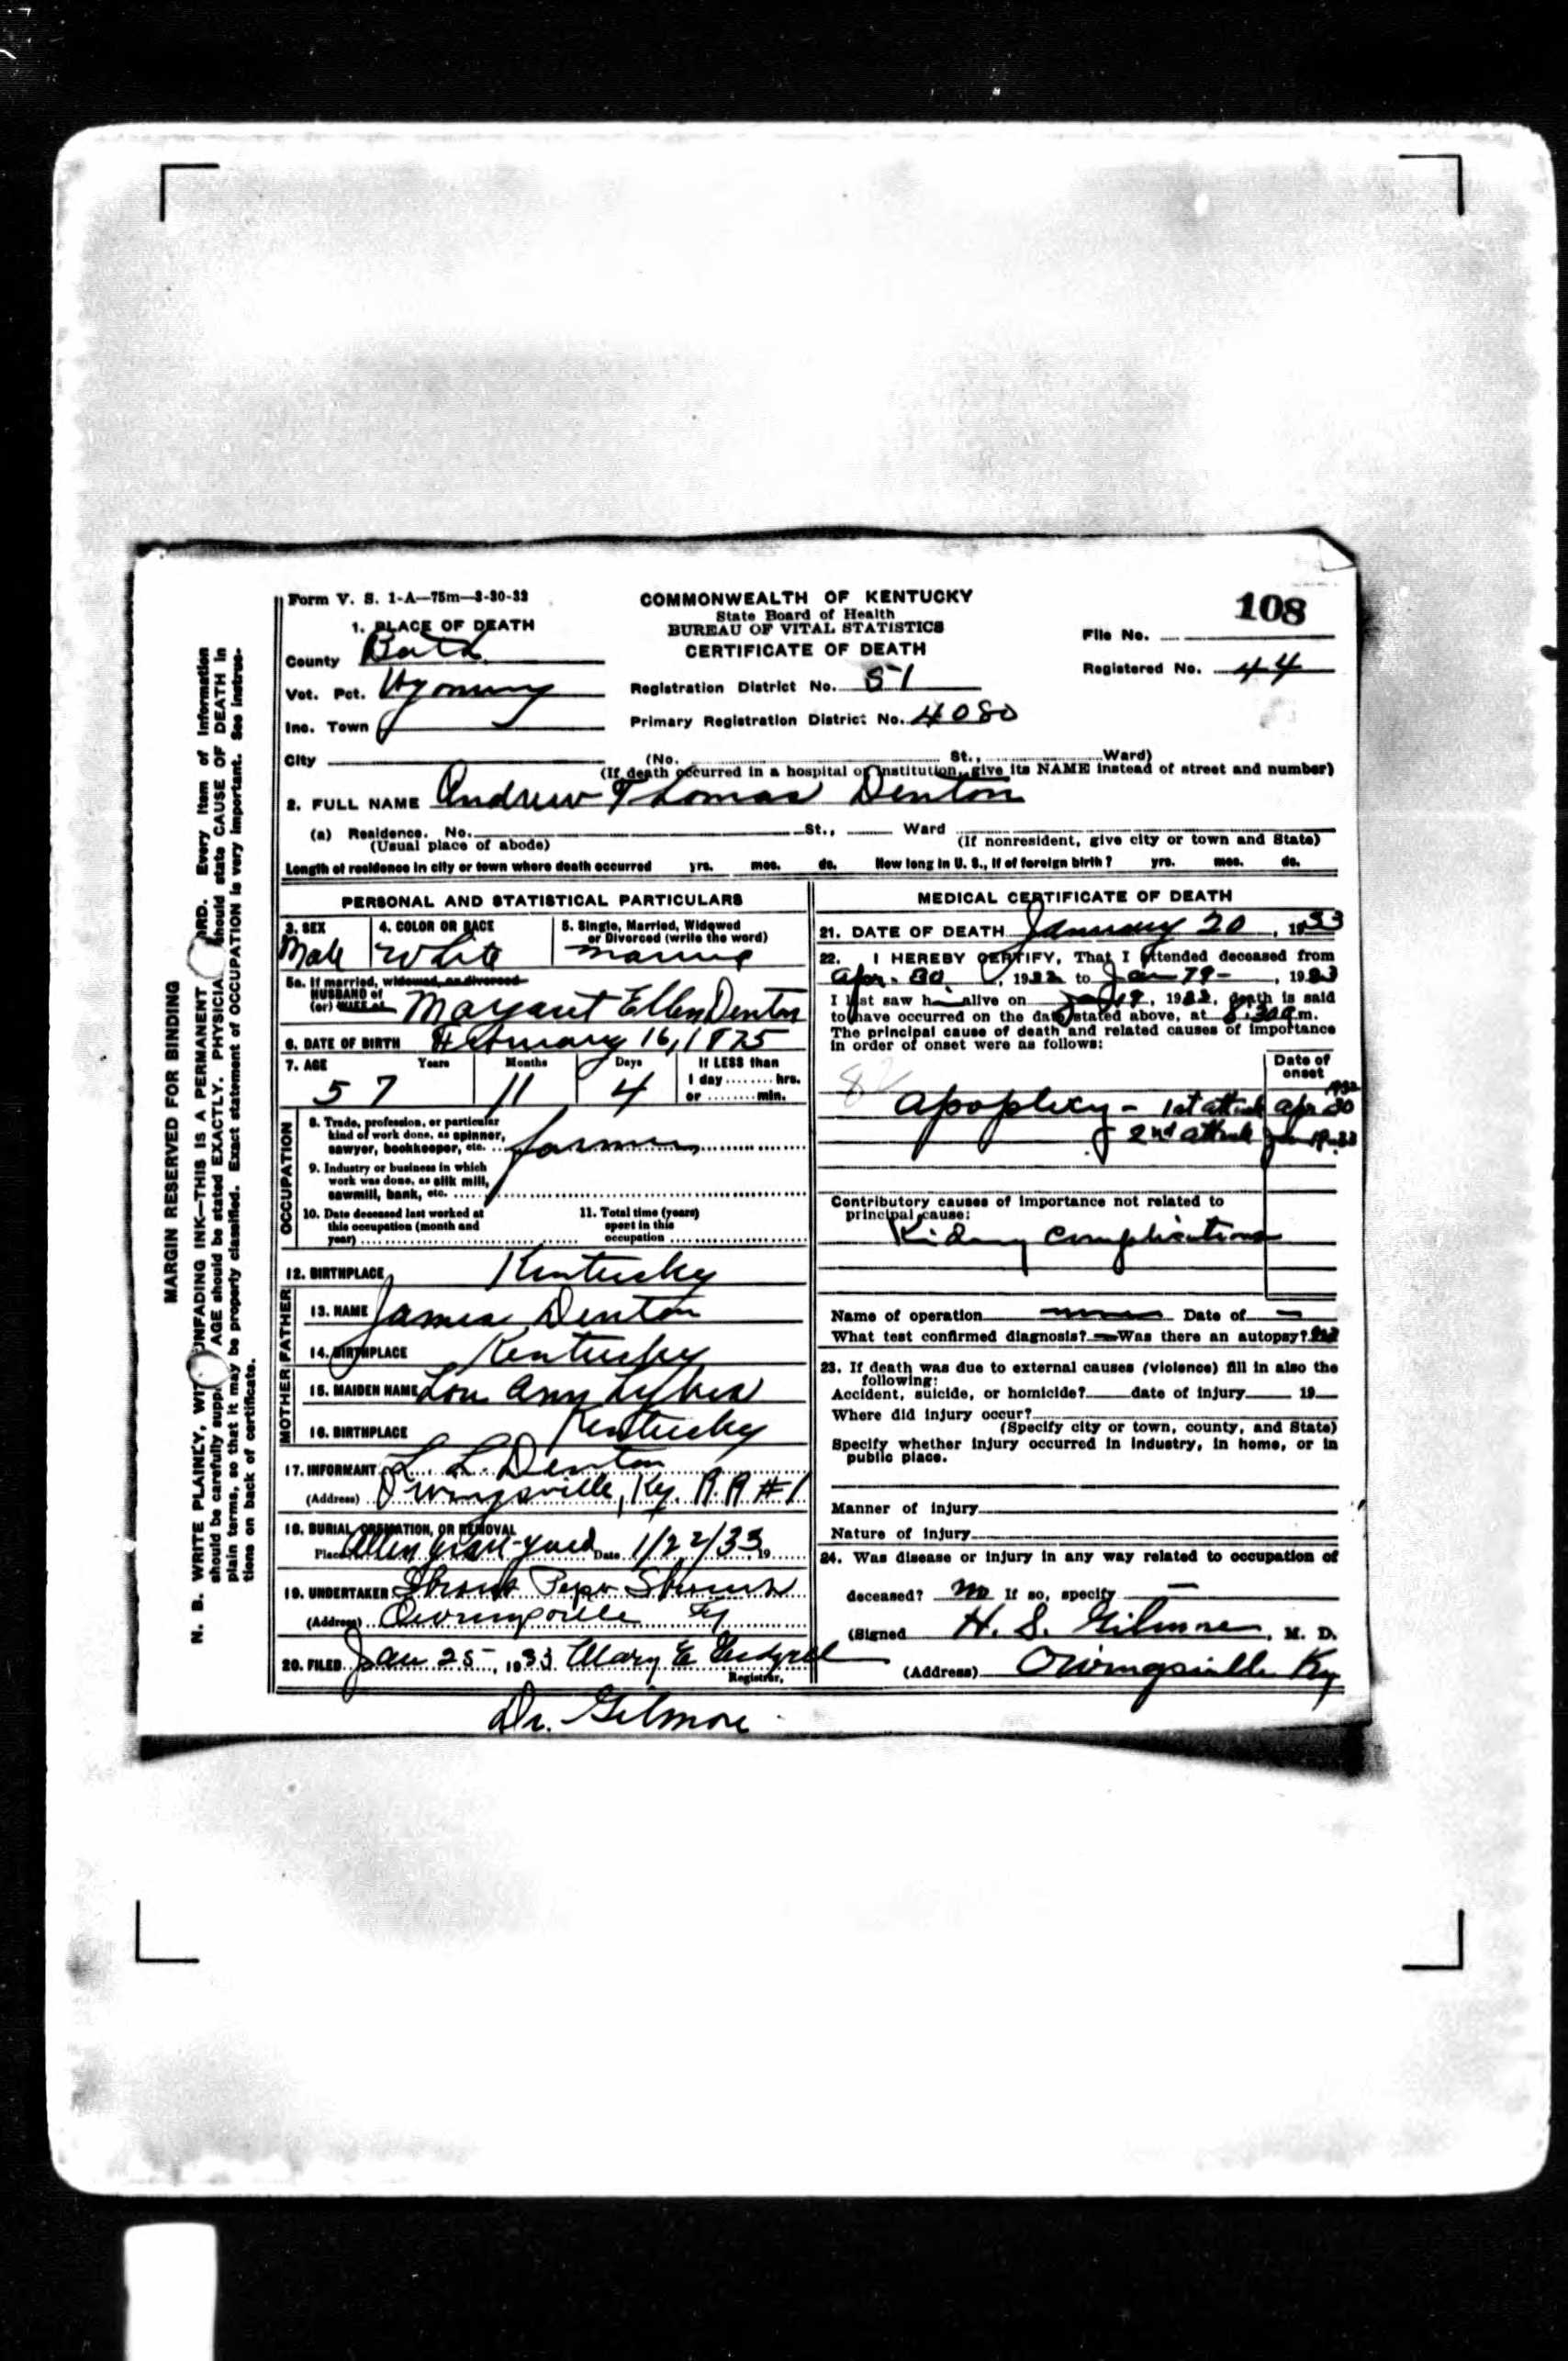 Form V. S. 1-A—75m—3-30-32
COMMONWEALTH OF KENTUCKY
State Board of Health
BUREAU OF VITAL STATISTICS
CERTIFICATE OF DEATH
108
File No.
Registered No. 44
1. PLACE OF DEATH
County Bath
Vot. Pct. Wyoming
Registration District No. 51
Inc. Town
Primary Registration District No. 4080
City (No. St., Ward)
(If death occurred in a hospital or institution, give its NAME instead of street and number)
2. FULL NAME Andrew Thomas Denton
(a) Residence. No. St., Ward
(Usual place of abode) (If nonresident, give city or town and State)
Length of residence in city or town where death occurred yrs. mos. ds. How long in U. S., if of foreign birth? yrs. mos. ds.
PERSONAL AND STATISTICAL PARTICULARS
3. SEX 4. COLOR OR RACE 5. Single, Married, Widowed
or Divorced (write the word)
Male White
5a. If married, widowed, or divorced
HUSBAND of
(or) WIFE of Margaret Ellen Denton
6. DATE OF BIRTH February 16, 1875
7. AGE Years Months Days If LESS than
1 day ........ hrs.
57 11 4 or ........ min.
OCCUPATION
8. Trade, profession, or particular
kind of work done, as spinner,
sawyer, bookkeeper, etc. farmer
9. Industry or business in which
work was done, as silk mill,
sawmill, bank, etc.
10. Date deceased last worked at
this occupation (month and
year)
11. Total time (years)
spent in this
occupation
12. BIRTHPLACE Kentucky
FATHER
13. NAME James Denton
14. BIRTHPLACE Kentucky
MOTHER
15. MAIDEN NAME Lou Ann
16. BIRTHPLACE Kentucky
17. INFORMANT L. L. Denton
(Address) Owingsville, Ky. R. R #1
18. BURIAL, CREMATION, OR REMOVAL
Place Allen grave-yard Date 1/22/33 19
19. UNDERTAKER
(Address) Owingsville Ky
20. FILED Jan 25, 1933 Mary E
Registrar.
Dr. Gilmore
MEDICAL CERTIFICATE OF DEATH
21. DATE OF DEATH January 20, 1933
22. I HEREBY CERTIFY, That I attended deceased from
Apr. 30, 1932 to Jan 19-, 1933
I last saw h alive on Jan 19, 19, death is said
to have occurred on the date stated above, at 8:30 a m.
The principal cause of death and related causes of importance
in order of onset were as follows:
Date of
onset
1932
apoplexy - 1st attack apr 30
2nd attack Jan 19-33
Contributory causes of importance not related to
principal cause:
Kidney complications
Name of operation none Date of —
What test confirmed diagnosis? — Was there an autopsy?
23. If death was due to external causes (violence) fill in also the
following:
Accident, suicide, or homicide? date of injury 19
Where did injury occur?
(Specify city or town, county, and State)
Specify whether injury occurred in industry, in home, or in
public place.
Manner of injury
Nature of injury
24. Was disease or injury in any way related to occupation of
deceased? no If so, specify —
(Signed H. S. Gilmore, M. D.
(Address) Owingsville Ky
MARGIN RESERVED FOR BINDING
N. B. WRITE PLAINLY, UNFADING INK—THIS IS A PERMANENT Every item of information
should be carefully AGE should be stated EXACTLY. should state CAUSE OF DEATH in
plain terms, so that it may be properly classified. Exact statement of OCCUPATION is very important. See instruc-
tions on back of certificate.